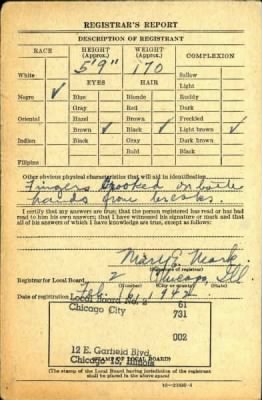 REGISTRAR'S REPORT
DESCRIPTION OF REGISTRANT
RACE HEIGHT (Approx.) WEIGHT (Approx.) COMPLEXION
5'9" 170
White EYES HAIR Sallow
Light
Negro ✓ Blue Blonde Ruddy
Gray Red Dark
Oriental Hazel Brown Freckled
Brown ✓ Black ✓ Light brown ✓
Indian Black Gray Dark brown
Bald Black
Filipino
Other obvious physical characteristics that will aid in identification
Fingers crooked on both
hands from breaks.
I certify that my answers are true; that the person registered has read or has had
read to him his own answers; that I have witnessed his signature or mark and that
all of his answers of which I have knowledge are true, except as follows:
Mark
(Signature of registrar)
Registrar for Local Board 2 Chicago, Ill
(Number) (City or county) (State)
Date of registration Feb. 1942
Local Board No. 2 61
Chicago City 731
002
12 E. Garfield Blvd.
Chicago 15, Illinois
(STAMP OF LOCAL BOARD)
(The stamp of the Local Board having jurisdiction of the registrant
shall be placed in the above space)